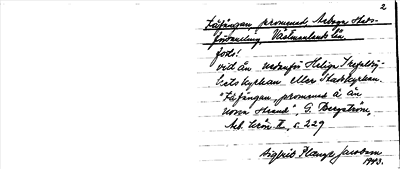 2
Fåfängan, promenad, Arboga stads-
församling, Västmanlands län.
foto!
vid ån nedanför Heliga Trefaldig-
hetskyrkan eller Stadskyrkan.
"Fåfängan, promenad å ån
norra strand", G. Bergström,
Arb. krön. II, s. 229
Sigfrid Jacobson
1943.